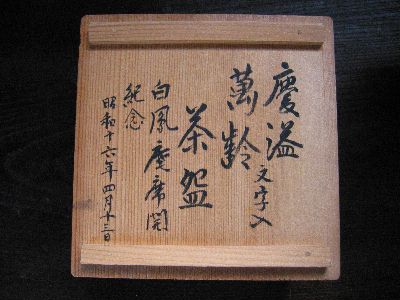 慶溢
萬齢 文字入
茶盌
白鳳庵席開
紀念
昭和十六年四月十三日